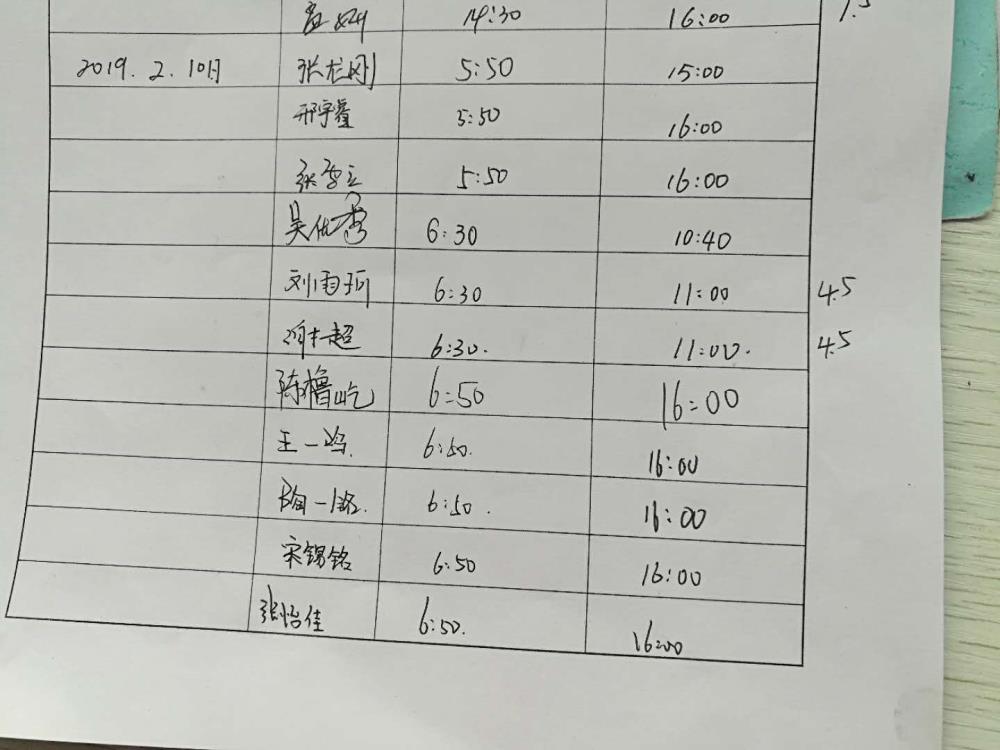 14:30 16:00 1.5
2019.2.10日 张龙刚 5:50 15:00
邢宇睿 5:50 16:00
张雪立 5:50 16:00
吴优秀 6:30 10:40
刘雨珂 6:30 11:00 4.5
超 6:30. 11:00. 4.5
陈橹屹 6:50 16:00
王一鸣. 6:50. 16:00
陶一铭. 6:50. 16:00
宋锡铭 6:50 16:00
张怡佳 6:50. 16:00